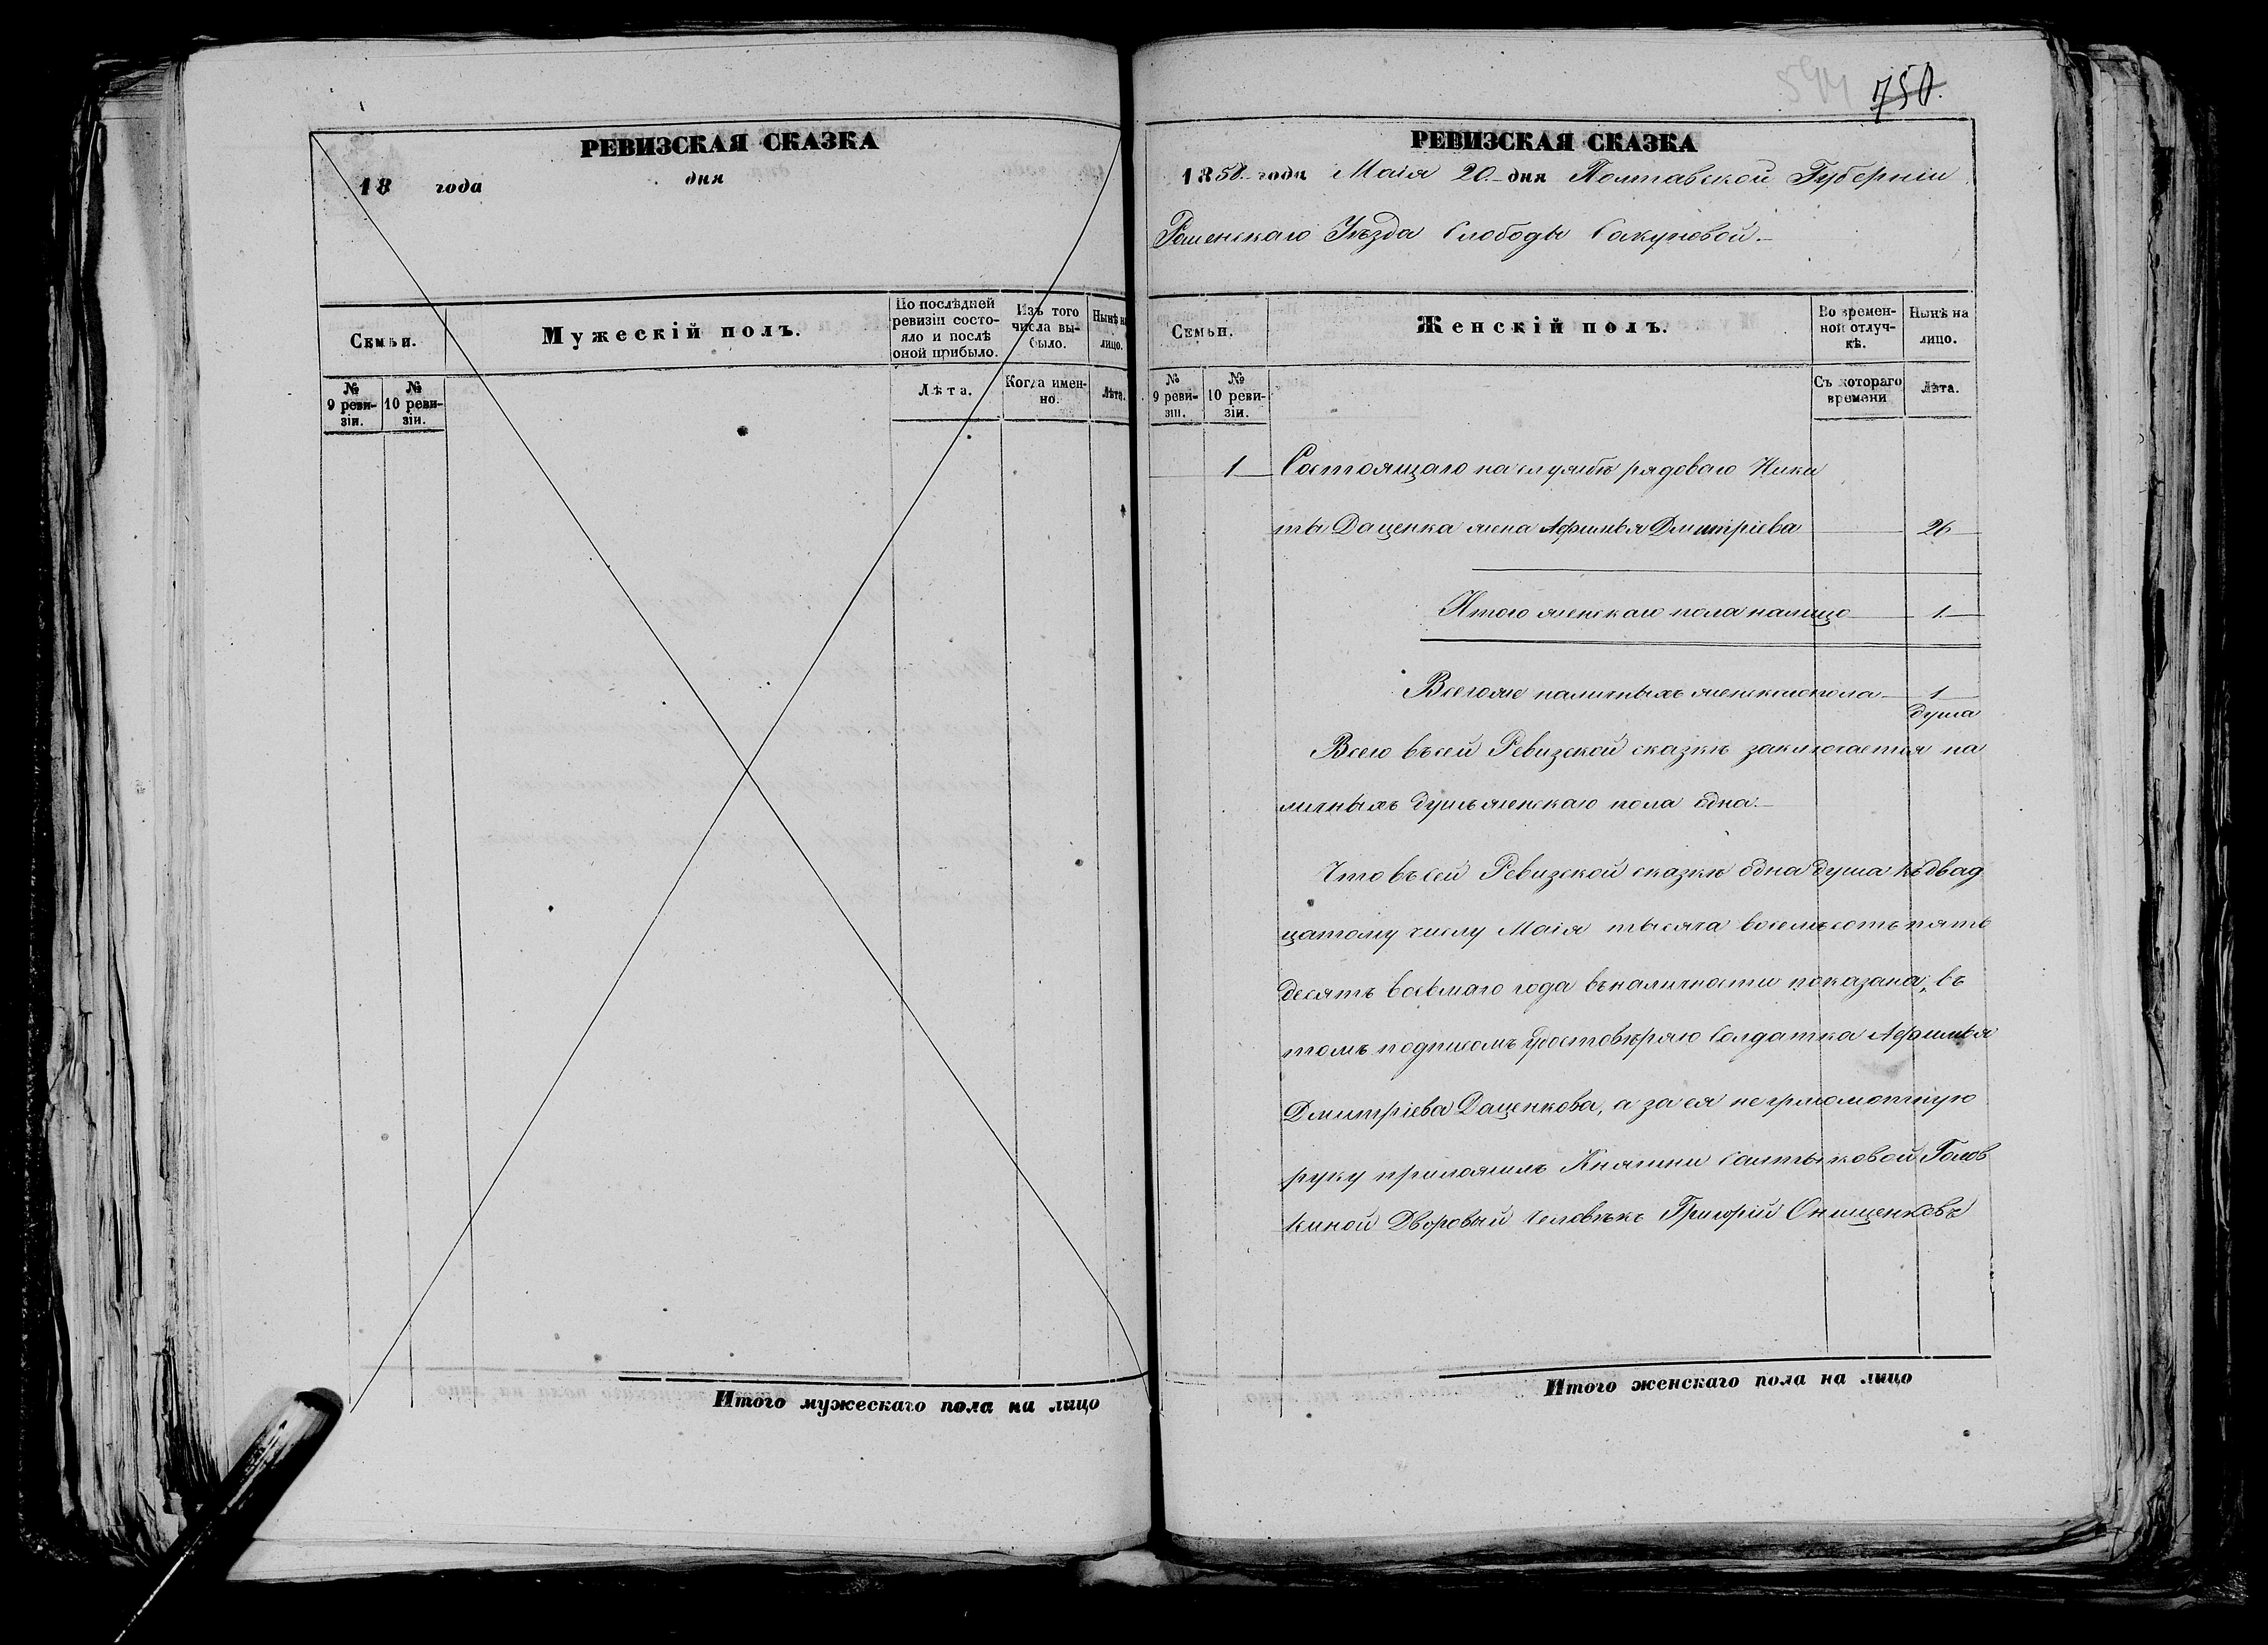 РЕВИЗСКАЯ СКАЗКА
18 года дня
Семьи.
Мужескій полъ.
По послѣдней ревизіи состояло и послѣ оной прибыло.
Изъ того числа выбыло.
Нынѣ на лицо.
№ 9 ревизіи.
№ 10 ревизіи.
Лѣта.
Когда именно.
Лѣта.
Итого мужескаго пола на лицо
544 750.
РЕВИЗСКАЯ СКАЗКА
1858. года Маія 20. дня Полтавской Губерніи
Роменскаго Уѣзда Слободы Сакуновой.
Семьи.
Женскій полъ.
Во временной отлучкѣ.
Нынѣ на лицо.
№ 9 ревизіи.
№ 10 ревизіи.
Съ котораго времени
Лѣта.
1 Состоящаго на службѣ рядоваго Ники
ты Даценка жена Афимья Дмитріева 26
Итого женскаго пола налицо 1
Всегоже наличныхъ женскаго пола 1
душа
Всего въ сей Ревизской сказкѣ заключается на
личныхъ душъ женскаго пола одна.
Что въ сей Ревизской сказкѣ одна душа къ двад
цатому числу Маія тысяча восемьсотъ пять
десятъ восьмаго года въ наличности показана, въ
томъ подписомъ удостовѣряю Солдатка Афимья
Дмитріева Даценкова, а за ея неграмотную
руку приложилъ Княгини Салтыковой Голов
киной Дворовый человѣкъ Григорій Онищенковъ
Итого женскаго пола на лицо